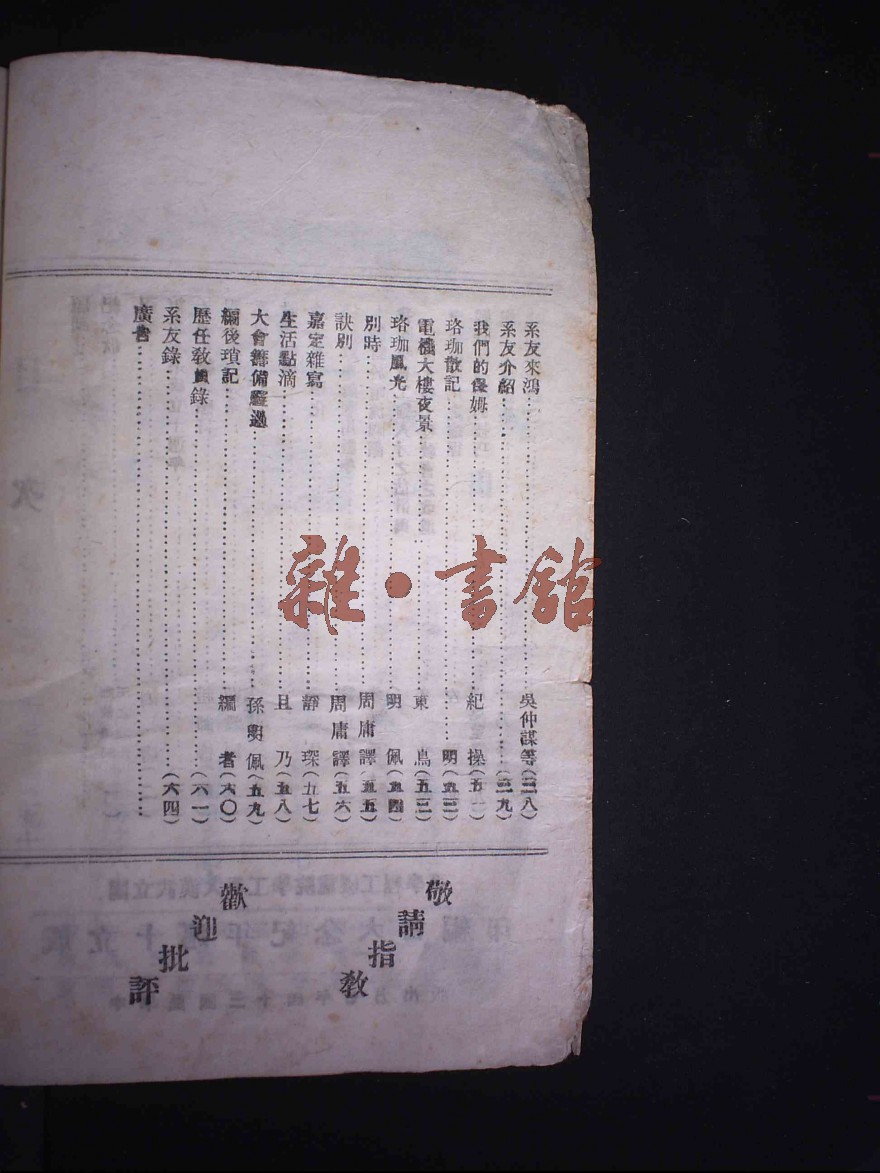 系友來鴻……吳仲謀等(三八)
系友介紹……(三九)
我們的保姆……紀操(五一)
珞珈散記……明(五二)
電機大樓夜景……東鳥(五三)
珞珈風光……明佩(五四)
別時……周庸譯(五五)
訣別……周庸譯(五六)
嘉定雜寫……靜琛(五七)
生活點滴……且乃(五八)
大會籌備經過……孫明佩(五九)
編後瑣記……編者(六〇)
歷任教員錄……(六一)
系友錄……(六四)
廣告……
敬請指教
歡迎批評
雜·書館